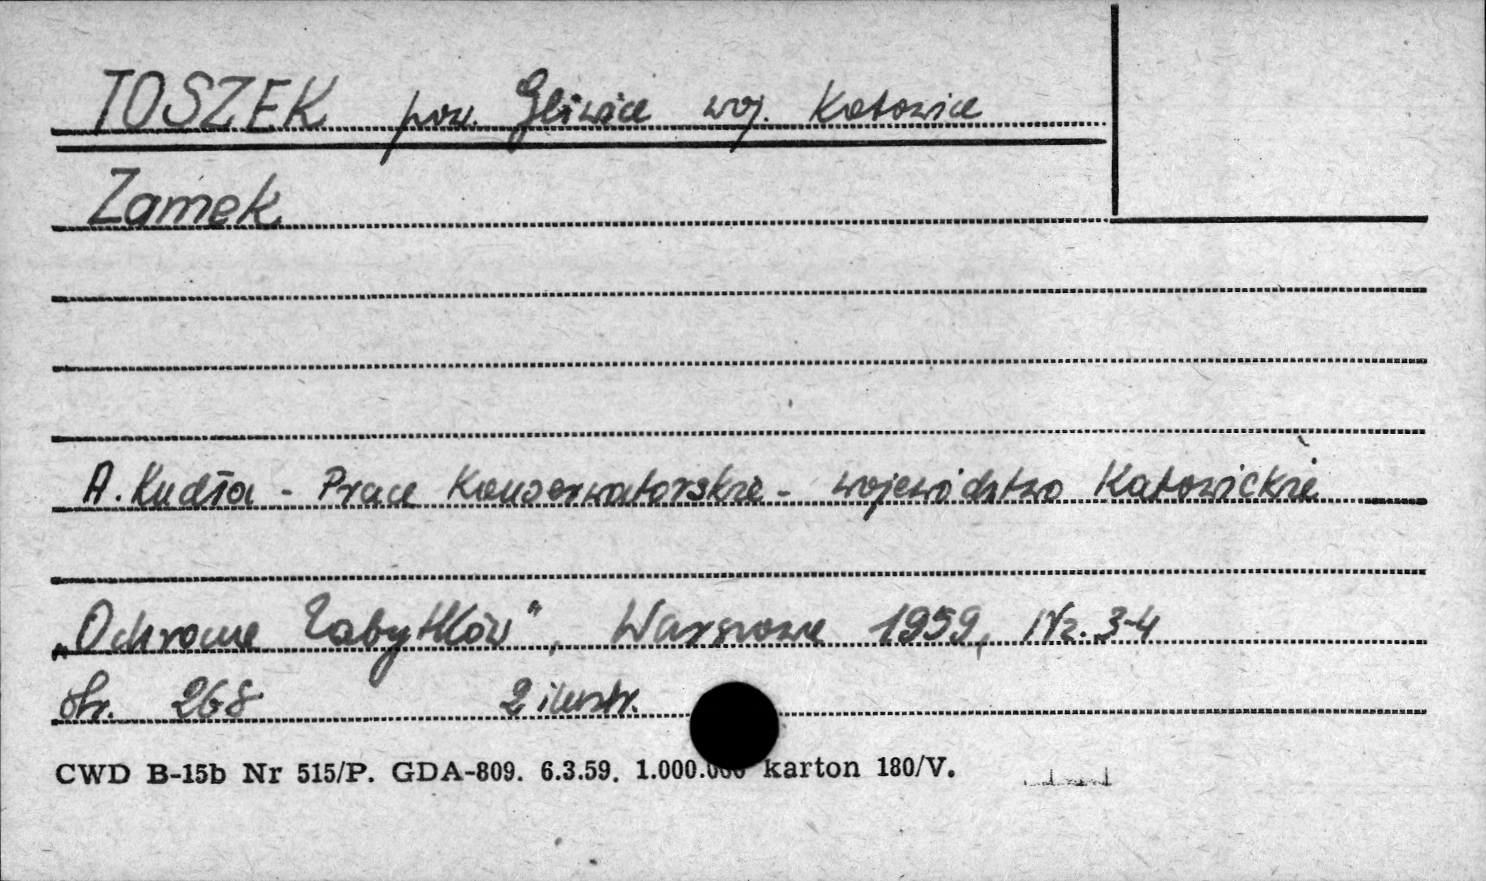 TOSZEK pow. Gliwice woj. Katowice
Zamek
A. Kudła - Prace Konserwatorskie - województwo Katowickie
„Ochrona Zabytków", Warszawa 1959, Nr. 3-4
str. 268 2 ilustr.
CWD B-15b Nr 515/P. GDA-809. 6.3.59. 1.000.000 karton 180/V.